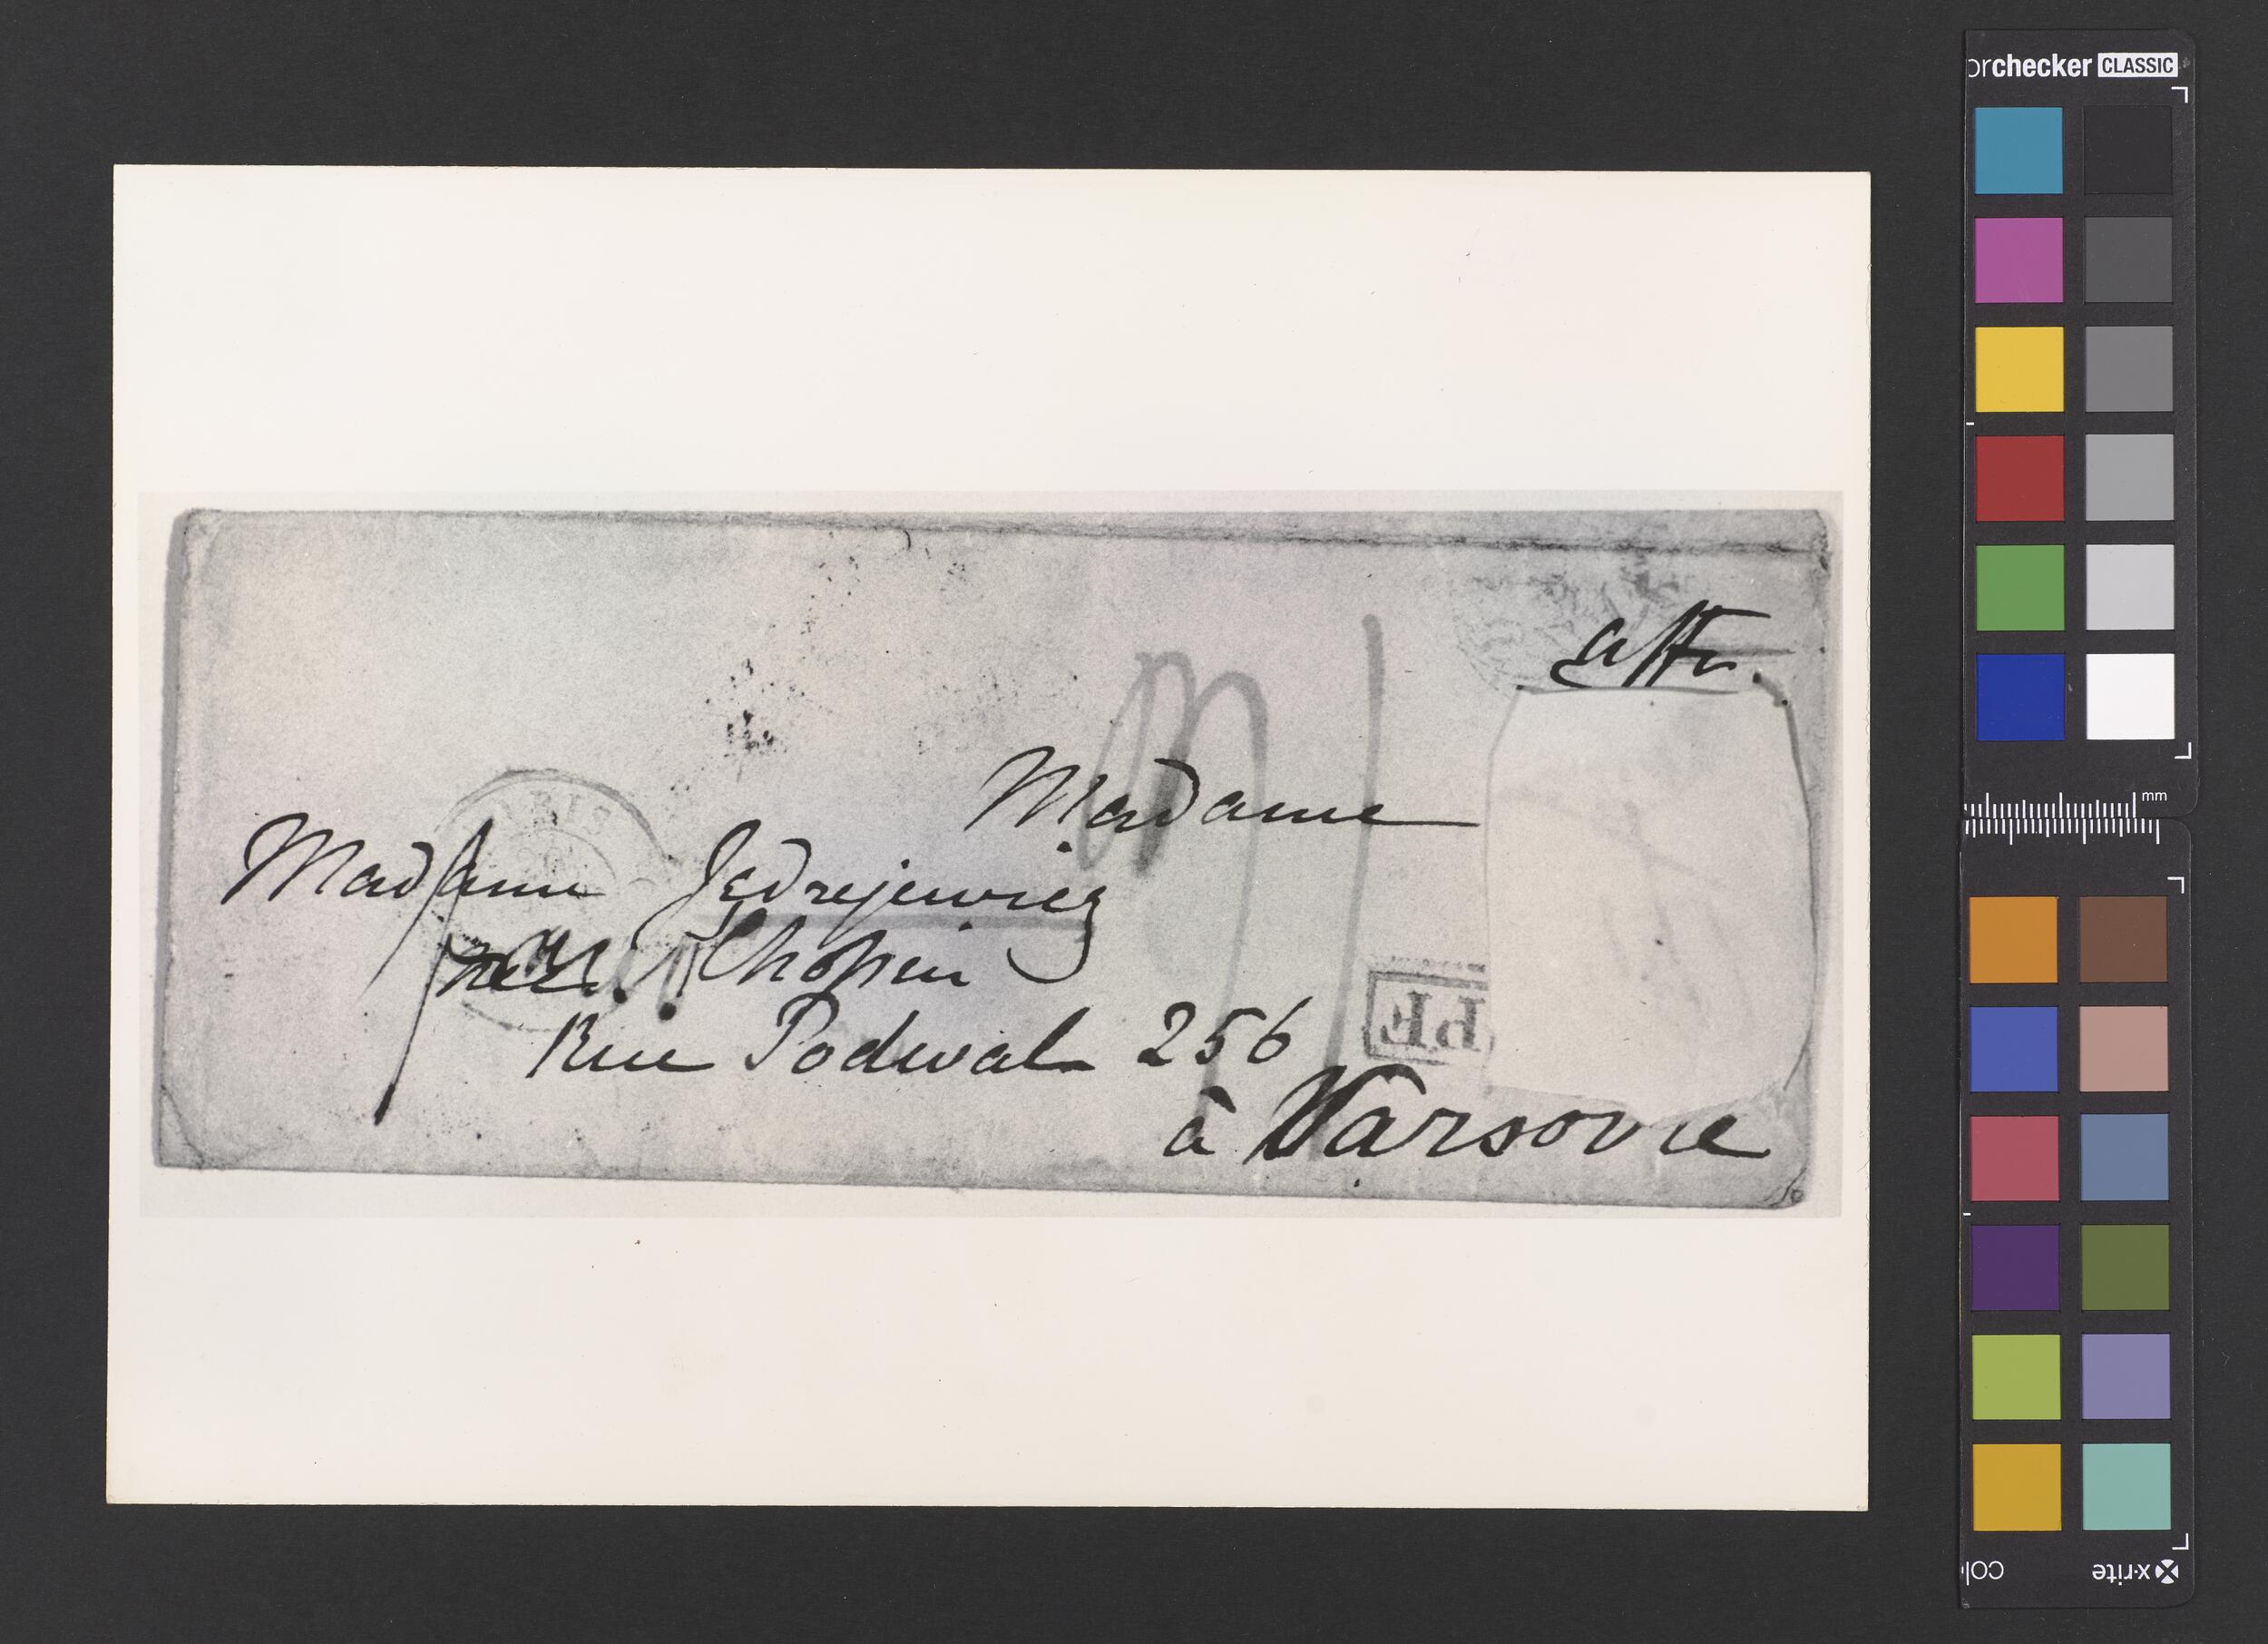 affr.
Madame
PARIS
Madame Jedrejewicz
née Chopin
PF
Rue Podwal 256
à Varsovie
orchecker CLASSIC
mm
x-rite
col